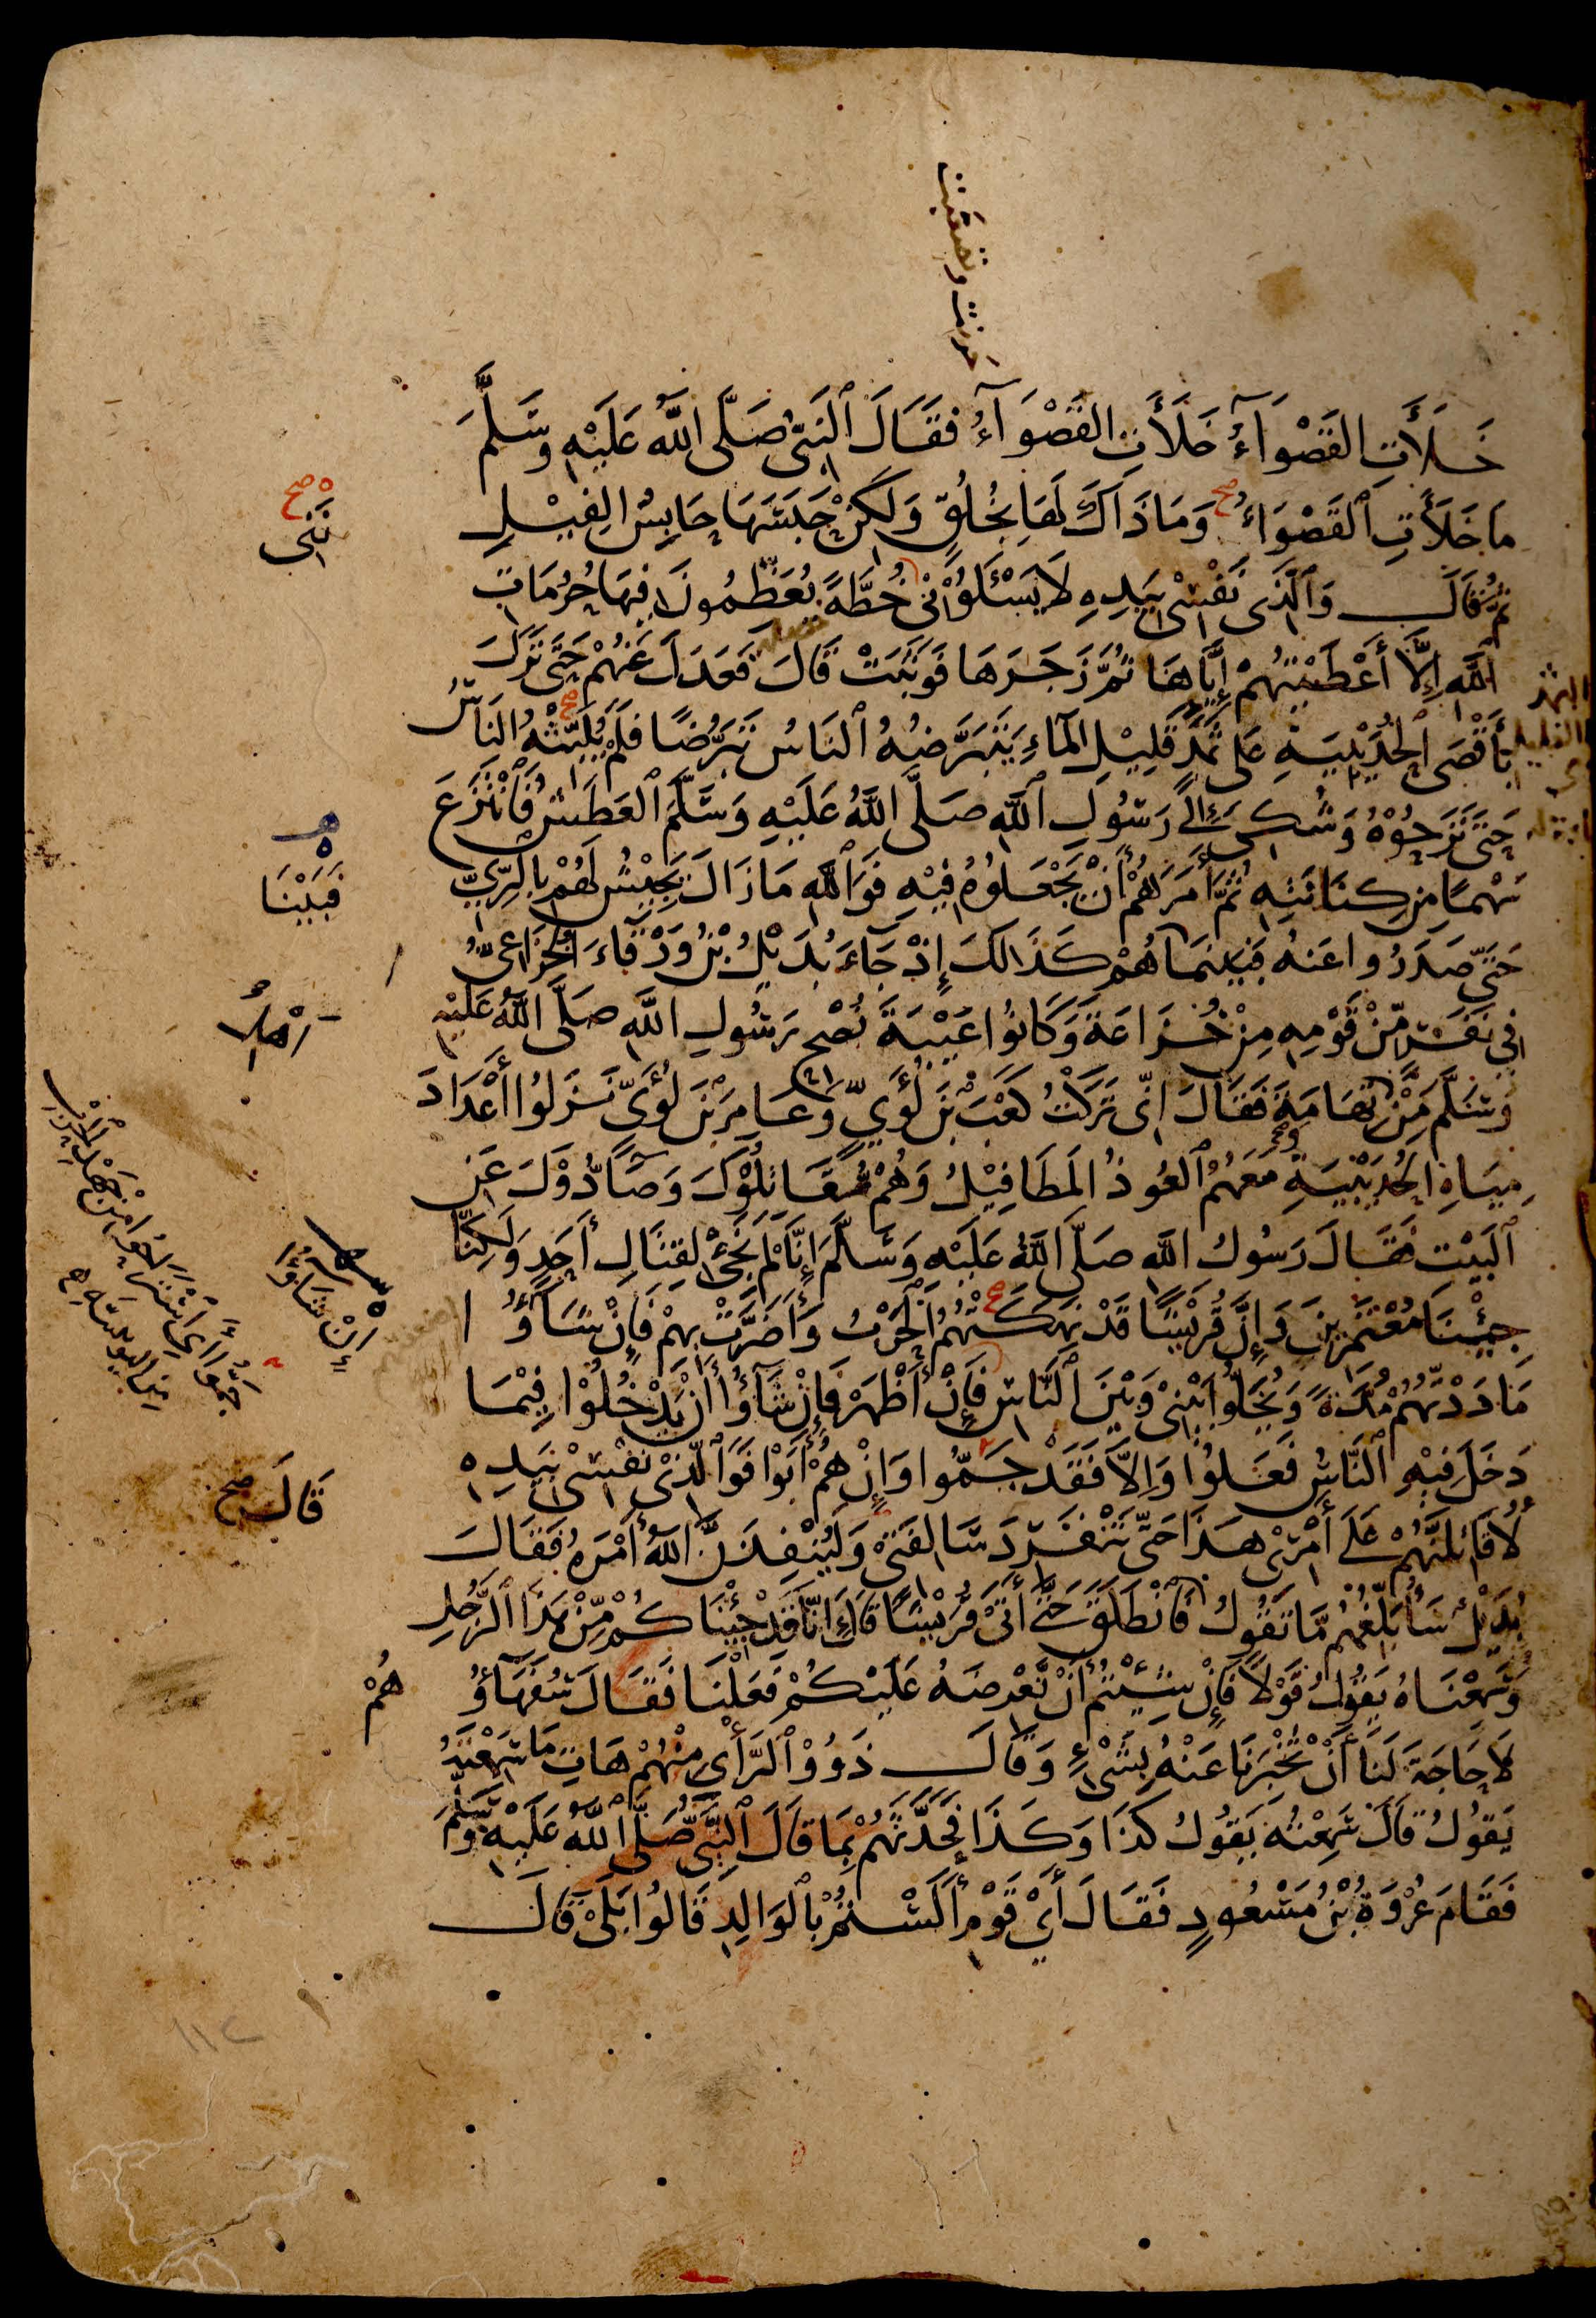 حرنت وتصعبت
خَلَأَتِ القَصْوَآءُ خَلَأَتِ القَصْوَآءُ فَقَالَ ٱلنَّبِىُّ صَلَّى اللَّهُ عَلَيْهِ وَسَلَّمَ
مَا خَلَأَتِ ٱلقَصْوَاءُ وَمَا ذَاكَ لَهَا بِخُلُقٍ وَلَكِنْ حَبَسَهَا حَابِسُ الفِيْلِ
ثُمَّ قَالَ وَٱلَّذِى نَفْسِى بِيَدِهِ لَا يَسْئَلُوْنِىْ خُطَّةً يُعَظِّمُونَ فِيهَا حُرُمَاتِ
اللَّهِ إِلَّا أَعْطَيْتُهُمْ إِيَّاهَا ثُمَّ زَجَرَهَا فَوَثَبَتْ قَالَ فَعَدَلَ عَنْهُمْ حَتَّى نَزَلَ
بِأَقْصَى الحُدَيْبِيَةِ عَلَى ثَمَدٍ قَلِيْلِ المَآءِ يَتَبَرَّضُهُ ٱلنَاسُ تَبَرُّضًا فَلَمْ يُلَبِّثْهُ النَاسُ
حَتَّى نَزَحُوْهُ وَشُكِىَ إِلَى رَسُولِ ٱللَّهِ صَلَّى اللَّهُ عَلَيْهِ وَسَلَّمَ ٱلعَطَشُ فَٱنْتَزَعَ
سَهْمًا مِن كِنَانَتِهِ ثُمَّ أَمَرَهُمْ أَنْ يَجْعَلُوهُ فِيْهِ فَوَٱللَّهِ مَا زَالَ يَجِيْشُ لَهُمْ بِالرِّيِّ
حَتَّى صَدَرُوا عَنْهُ فَبَيْنَمَا هُمْ كَذَالِكَ إِذْ جَآءَ بُدَيْلُ بْنُ وَرْقَآءَ الخُزَاعِىُّ
فِى نَفَرٍ مِّنْ قَوْمِهِ مِنْ خُزَاعَةَ وَكَانُوا عَيْبَةَ نُصْحِ رَسُولِ اللَّهِ صَلَّى اللَّهُ عَلَيْهِ
وَسَلَّمَ مِّنْ تِهَامَةَ فَقَالَ إِنِّى تَرَكْتُ كَعْبَ بْنَ لُؤَيٍّ وَعَامِرَ بْنَ لُؤَىٍّ نَزَلُوا أَعْدَادَ
مِيَاهِ الحُدَيْبِيَةِ مَعَهُمُ ٱلعُوذُ المَطَافِيْلُ وَهُمْ مُقَاتِلُوْكَ وَصَآدُّوْكَ عَنِ
ٱلبَيْتِ فَقَالَ رَسُولُ اللَّهِ صَلَّى اللَّهُ عَلَيْهِ وَسَلَّمَ إِنَّا لَمْ نَجِئْ لِقِتَالِ أَحَدٍ وَلَكِنَّا
جِئْنَا مُعْتَمِرِينَ وَإِنَّ قُرَيْشًا قَدْ نَهَكَتْهُمُ ٱلحَرْبُ وَأَضَرَّتْ بِهِمْ فَإِنْ شَآؤُا
مَادَدْتُهُمْ مُدَّةً وَيُخَلُّوا بَيْنِىْ وَبَيْنَ ٱلنَّاسِ فَإِنْ أَظْهَرْ فَإِنْ شَآؤُا أَنْ يَدْخُلُوْا فِيْمَا
دَخَلَ فِيْهِ ٱلنَّاسُ فَعَلُوْا وَإِلَّا فَقَدْ جَمُّوا وَإِنْ هُمْ أَبَوْا فَوَٱلَّذِىْ نَفْسِىْ بِيَدِهِ
لَأُقَاتِلَنَّهُمْ عَلَى أَمْرِىْ هَذَا حَتَّى تَنْفَرِدَ سَالِفَتِىْ وَلَيُنْفِذَنَّ اللَّهُ أَمْرَهُ فَقَالَ
بُدَيْلٌ سَأُبَلِّغُهُمْ مَّا تَقُولُ فَٱنْطَلَقَ حَتَّى أَتَى قُرَيْشًا قَالَ إِنَّا قَدْ جِئْنَاكُمْ مِّنْ هَذَا ٱلرَّجُلِ
وَسَمِعْنَاهُ يَقُوْلُ قَوْلًا فَإِنْ شِئْتُمْ أَنْ نَّعْرِضَهُ عَلَيْكُمْ فَعَلْنَا فَقَالَ سُفَهَآؤُهُمْ
لَا حَاجَةَ لَنَا أَنْ تُخْبِرَنَا عَنْهُ بِشَىْءٍ وَقَالَ ذَوُوْ ٱلرَّأْىِ مِنْهُمْ هَاتِ مَا سَمِعْتَهُ
يَقُولُ قَالَ سَمِعْتُهُ يَقُولُ كَذَا وَكَذَا فَحَدَّثَهُمْ بِمَا قَالَ ٱلنَّبِىُّ صَلَّى اللَّهُ عَلَيْهِ وَسَلَّمَ
فَقَامَ عُرْوَةُ بْنُ مَسْعُودٍ فَقَالَ أَيْ قَوْمِ أَلَسْتُمْ بِالوَالِدِ قَالُوا بَلَى قَالَ
صح
فَبَيْنَا
إِنْ شَآؤُا
جَمُّوا أَى اسْتَرَاحُوا مِنْ جَهْدِ الحَرْبِ
مِنَ اليونينية
قَالَ صح
١١٢